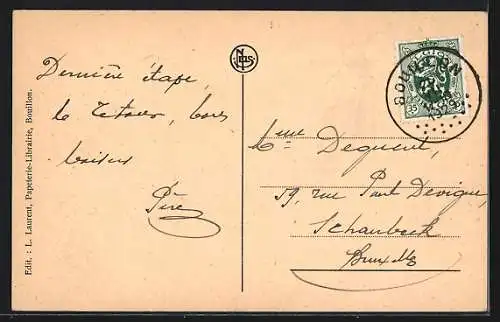 Dernière étape,
le retour, bons
baisers
Père
Edit. : L. Laurent, Papeterie-Librairie, Bouillon.
NELS
BELGIQUE
35
BOUILLON
Mme Dequeut,
59, rue Pont Devigne,
Schaerbeek
Bruxelles